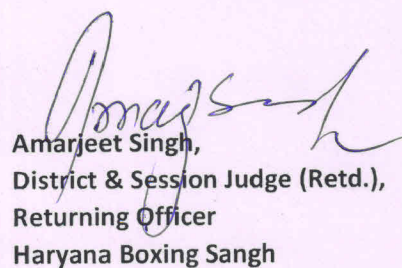 Amarjeet Singh,
District & Session Judge (Retd.),
Returning Officer
Haryana Boxing Sangh